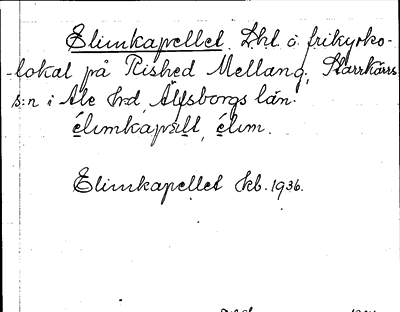 Elimkapellet. Lkl. o. frikyrko-
-lokal på Rished Mellang, Starrkärrs
s:n i Ale hrd, Älfsborgs län.
élimkapäll, élim.
Elimkapellet kb. 1936.